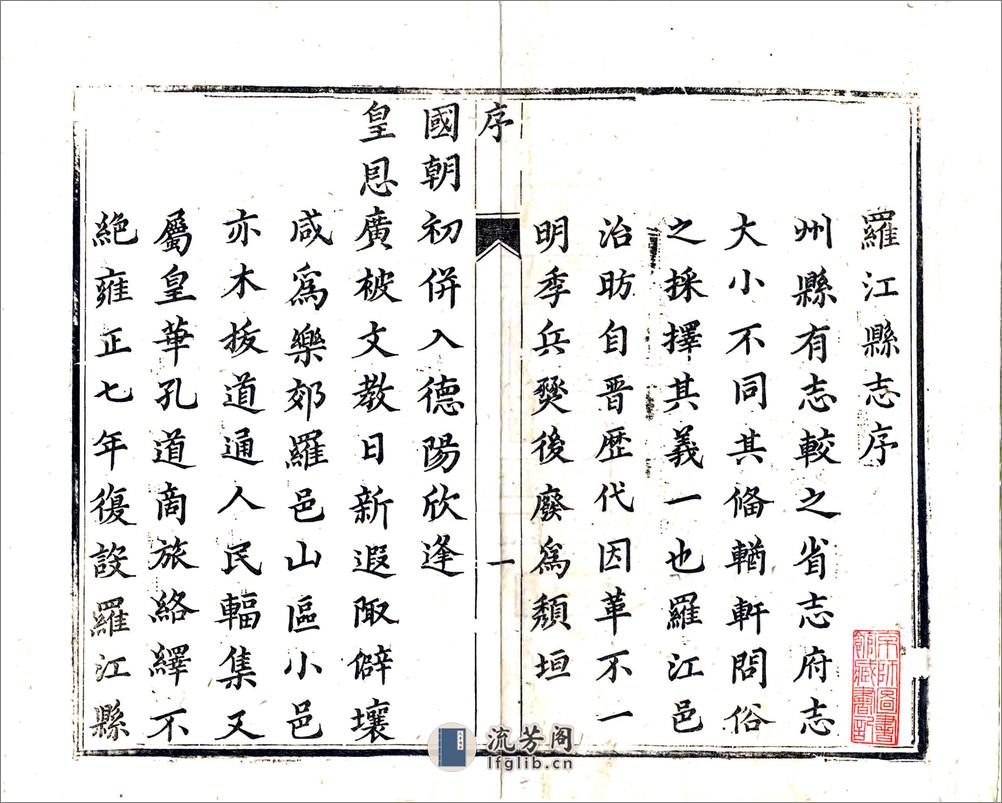 羅江縣志序
州縣有志較之省志府志
大小不同其偹輶軒問俗
之採擇其義一也羅江邑
治昉自晋歴代因革不一
明季兵燹後廢爲頹垣
序
一
國朝初併入德陽欣逢
皇恩廣被文教日新遐陬僻壤
咸爲樂郊羅邑山區小邑
亦木拔道通人民輻集又
屬皇華孔道商旅絡繹不
絶雍正七年復設羅江縣
流芳阁
lfglib.cn